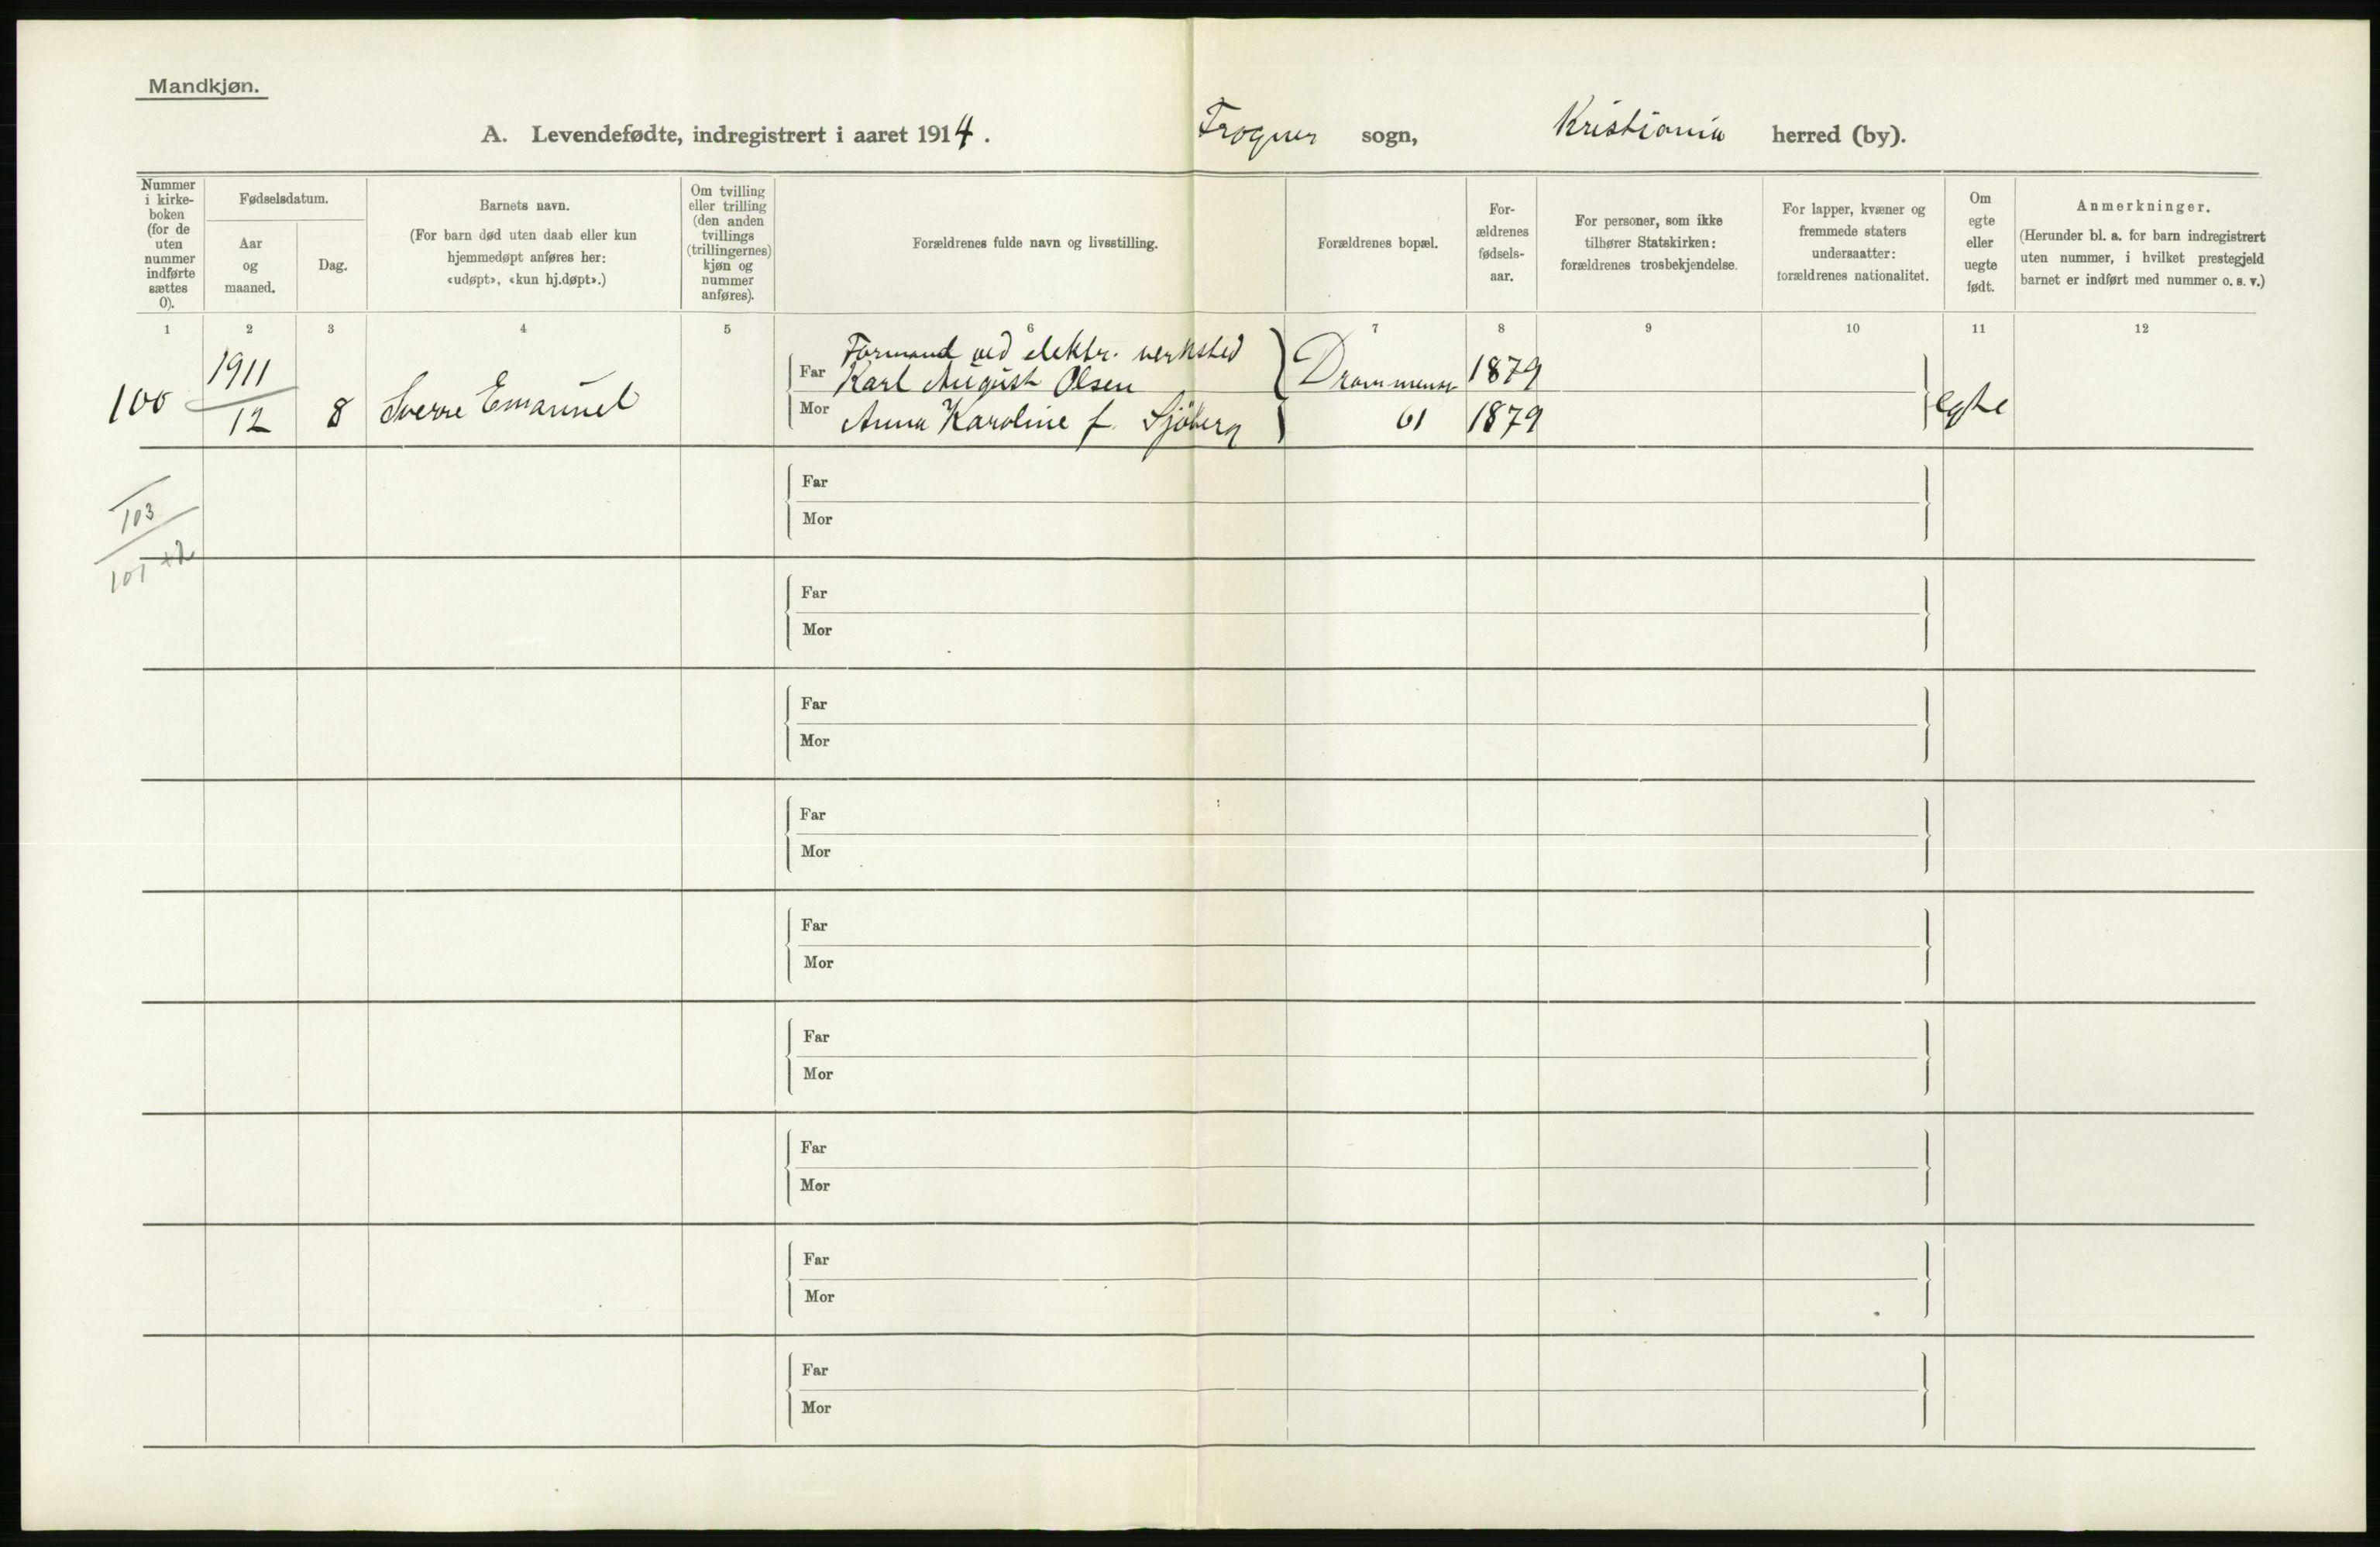 Mandkjøn.
A. Levendefødte, indregistrert i aaret 1914. Frogner sogn, Kristiania herred (by).
Nummer i kirke-boken (for de uten nummer indførte sættes 0).
Fødselsdatum.
Aar og maaned.
Dag.
Barnets navn.
(For barn død uten daab eller kun
hjemmedøpt anføres her:
«udøpt», «kun hj.døpt».)
Om tvilling
eller trilling
(den anden
tvillings
(trillingernes)
kjøn og
nummer
anføres).
Forældrenes fulde navn og livsstilling.
Forældrenes bopæl.
For-
ældrenes
fødsels-
aar.
For personer, som ikke
tilhører Statskirken:
forældrenes trosbekjendelse.
For lapper, kvæner og
fremmede staters
undersaatter:
forældrenes nationalitet.
Om
egte
eller
uegte
født.
Anmerkninger.
(Herunder bl. a. for barn indregistrert
uten nummer, i hvilket prestegjeld
barnet er indført med nummer o. s. v.)
1 2 3 4 5 6 7 8 9 10 11 12
Formand ved elektr. verksted
100 1911 12 8 Sverre Emanuel
Far Karl August Olsen Drammensv 1879
Mor Anna Karoline f. Sjöberg 61 1879 egte
103
101 +2
Far
Mor
Far
Mor
Far
Mor
Far
Mor
Far
Mor
Far
Mor
Far
Mor
Far
Mor
Far
Mor